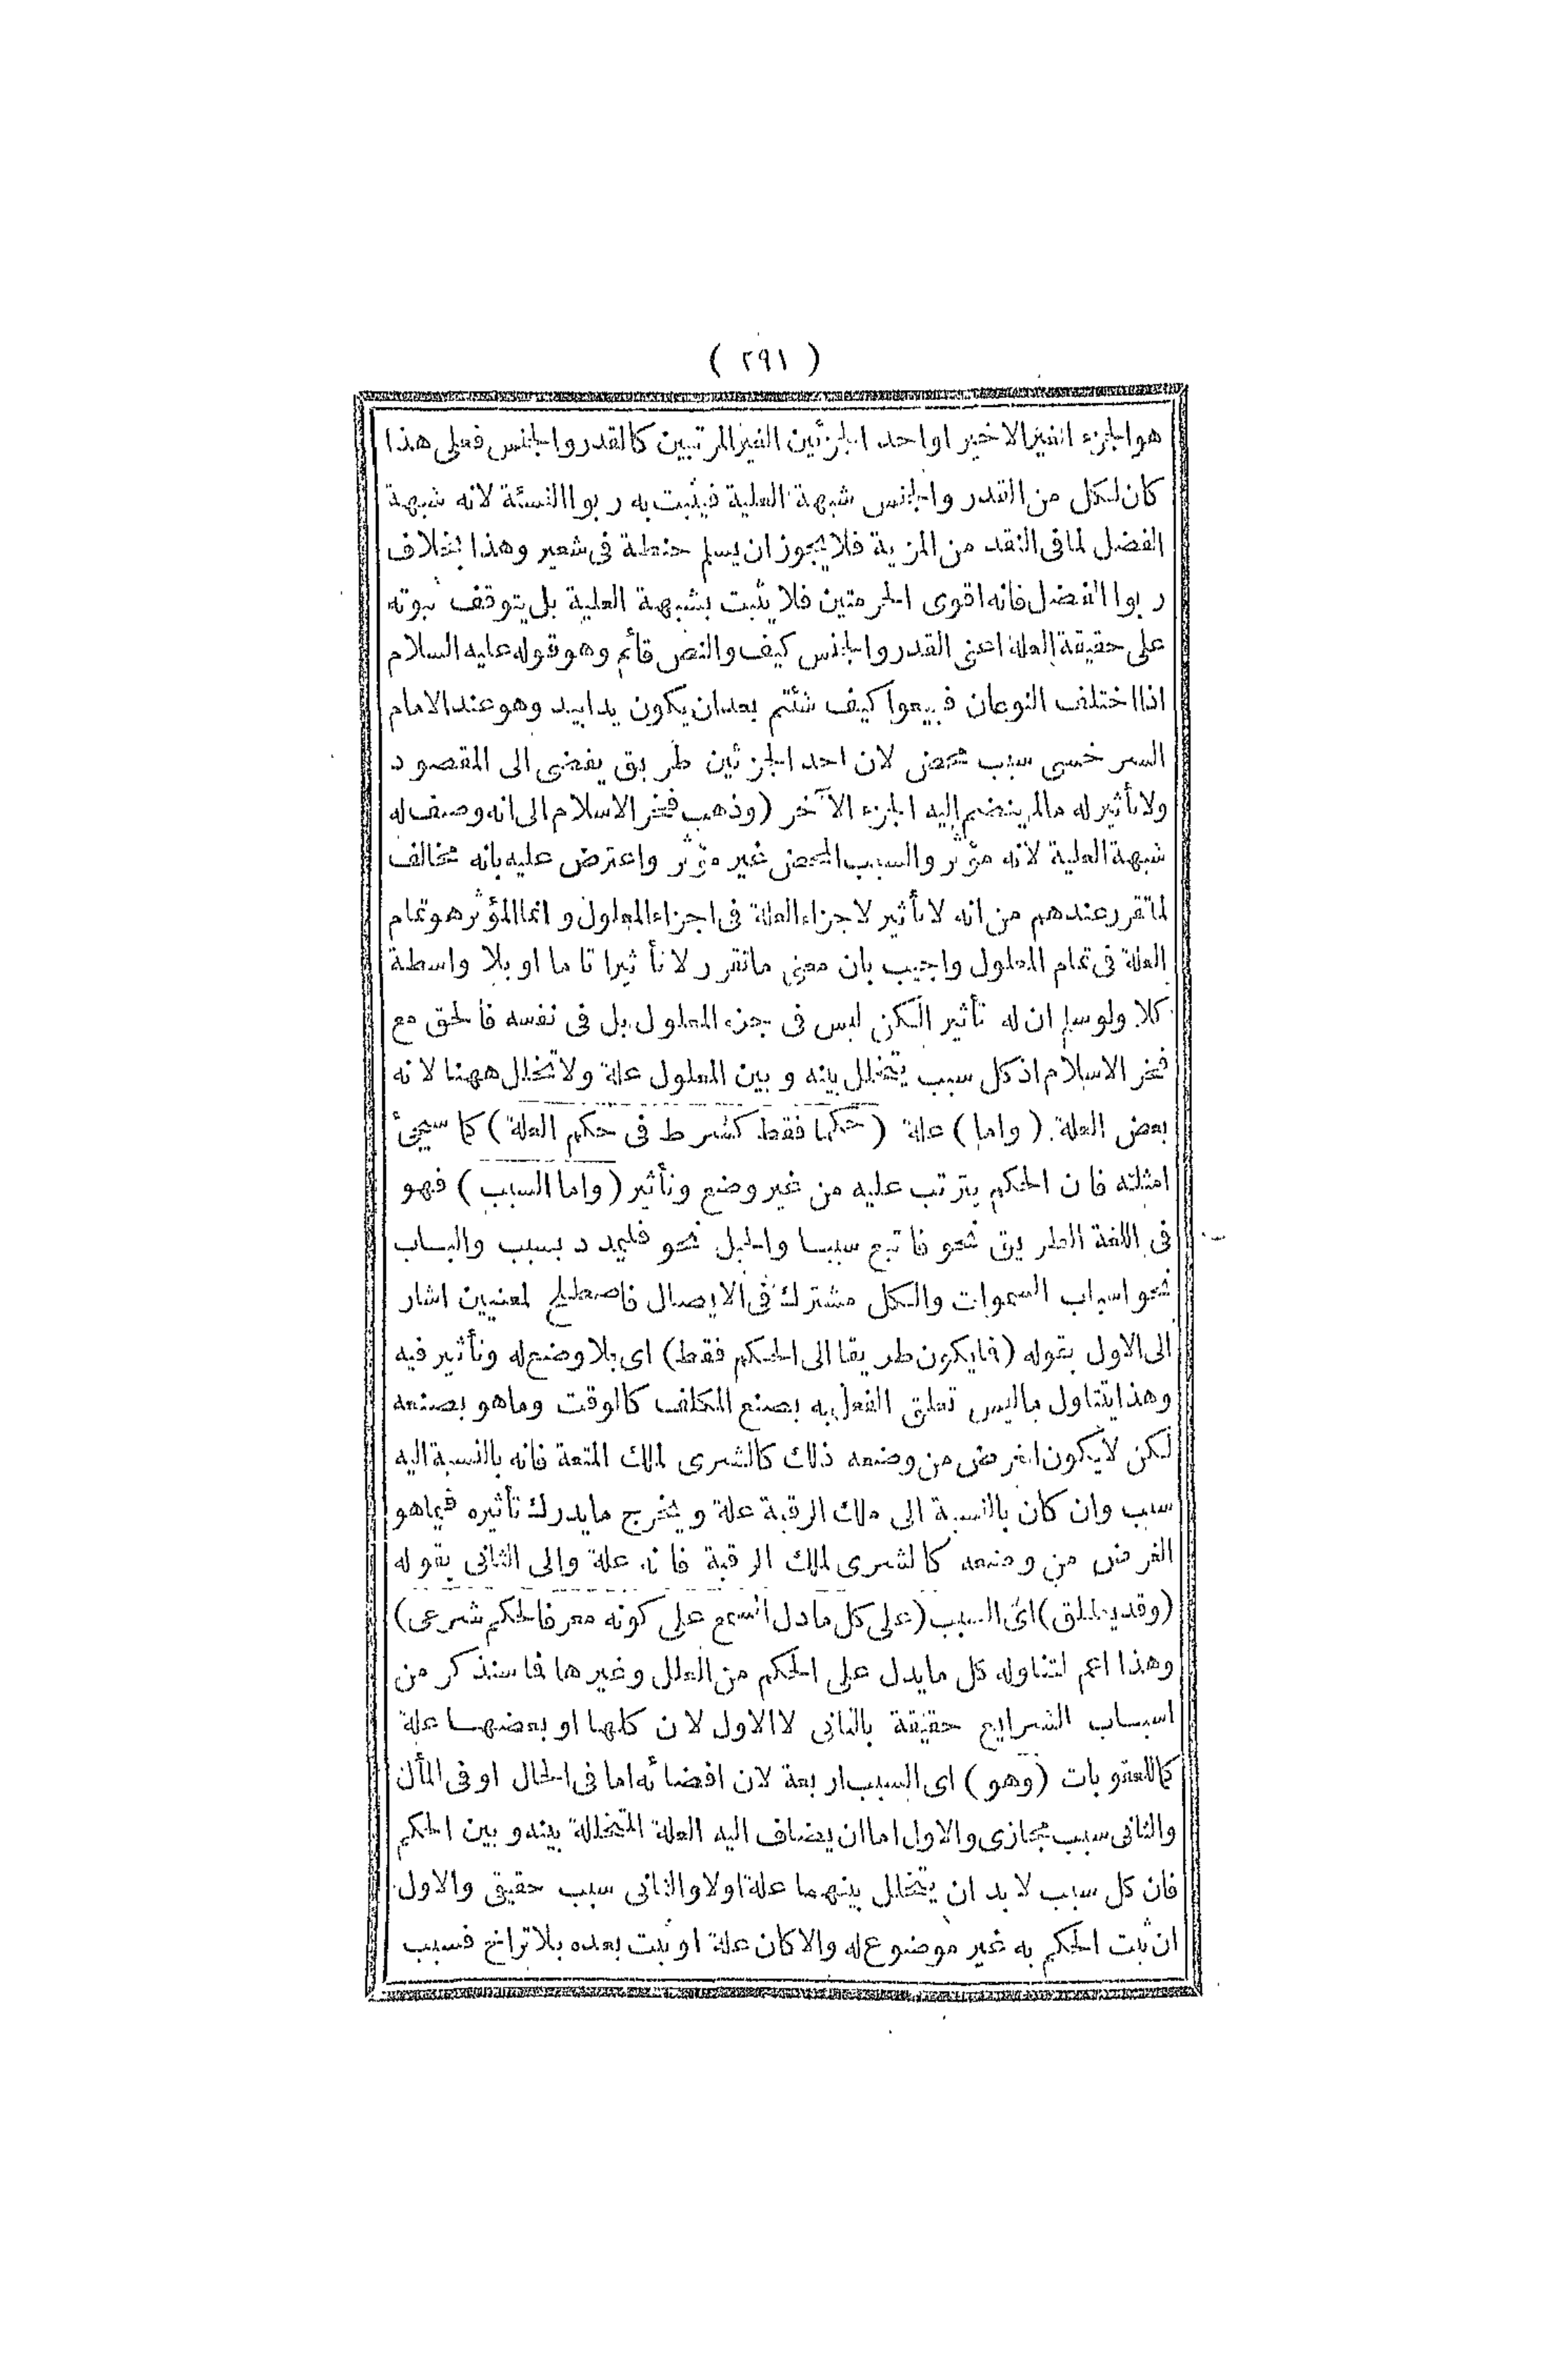 ( ٢٩١ )
هو الجزء الغير الاخير او احد الجزئين الغير المرتبين كالقدر والجنس فعلى هذا
كان لكل من القدر والجنس شبهة العلية فيثبت به ربوا النسئة لانه شبهة
الفضل لما فى النقد من المزية فلا يجوز ان يسلم حنطة فى شعير وهذا بخلاف
ربوا الفضل فانه اقوى الحرمتين فلا يثبت بشبهة العلية بل يتوقف ثبوته
على حقيقة العلة اعنى القدر والجنس كيف والنص قائم وهو قوله عليه السلام
اذا اختلف النوعان فبيعوا كيف شئتم بعد ان يكون يدا بيد وهو عند الامام
السرخسى سبب محض لان احد الجزئين طريق يفضى الى المقصود
ولا تأثير له مالم ينضم اليه الجزء الآخر (وذهب فخر الاسلام الى انه وصف له
شبهة العلية لانه مؤثر والسبب المحض غير مؤثر واعترض عليه بانه مخالف
لما تقرر عندهم من انه لا تأثير لاجزاء العلة فى اجزاء المعلول وانما المؤثر هو تمام
العلة فى تمام المعلول واجيب بان معنى ماتقرر لا تأثيرا تاما او بلا واسطة
كلا ولو سلم ان له تأثير الكن ليس فى جزء المعلول بل فى نفسه فالحق مع
فخر الاسلام اذ كل سبب يتخلل بينه وبين المعلول علة ولا تخلل ههنا لانه
بعض العلة (واما) علة (حكما فقط كشرط فى حكم العلة) كما سيجئ
امثلته فان الحكم يترتب عليه من غير وضع وتأثير (واما السبب) فهو
فى اللغة الطريق نحو فاتبع سببا والحبل نحو فليمدد بسبب والباب
نحو اسباب السموات والكل مشترك فى الايصال فاصطلح لمعنيين اشار
الى الاول بقوله (فما يكون طريقا الى الحكم فقط) اى بلا وضع له وتأثير فيه
وهذا يتناول ماليس تعلق الفعل به بصنع المكلف كالوقت وماهو بصنعه
لكن لا يكون الغرض من وضعه ذلك كالشرى لملك المتعة فانه بالنسبة اليه
سبب وان كان بالنسبة الى ملك الرقبة علة ويخرج مايدرك تأثيره فيماهو
الغرض من وضعه كالشرى لملك الرقبة فانه علة والى الثانى بقوله
(وقد يطلق) اى السبب (على كل مادل السمع على كونه معرفا لحكم شرعى)
وهذا اعم لتناوله كل مايدل على الحكم من العلل وغيرها فما سنذكر من
اسباب الشرايع حقيقة بالثانى لا الاول لان كلها او بعضها علة
كالعقوبات (وهو) اى السبب اربعة لان افضائه اما فى الحال او فى المأل
والثانى سبب مجازى والاول اما ان يضاف اليه العلة المتخللة بينه وبين الحكم
فان كل سبب لا بد ان يتخلل بينهما علة اولا والثانى سبب حقيقى والاول
ان ثبت الحكم به غير موضوع له والا كان علة او ثبت بعده بلا تراخ فسبب